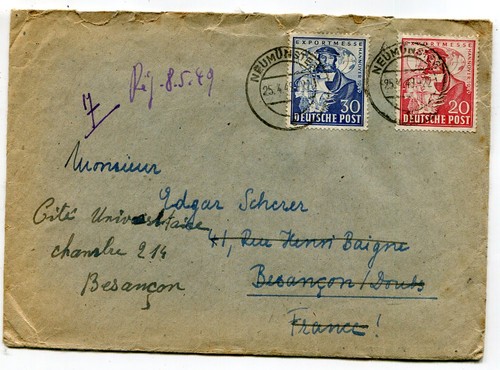 EXPORTMESSE HANNOVER 1949
30
DEUTSCHE POST
EXPORTMESSE HANNOVER 1949
20
DEUTSCHE POST
NEUMÜNSTER
25.4.49
NEUMÜNSTER
25.4.49
Rép. 8.5.49
Monsieur
Edgar Scherer
41, Rue Henri Baigne
Besançon/Doubs
France!
Cité Universitaire
chambre 214
Besançon